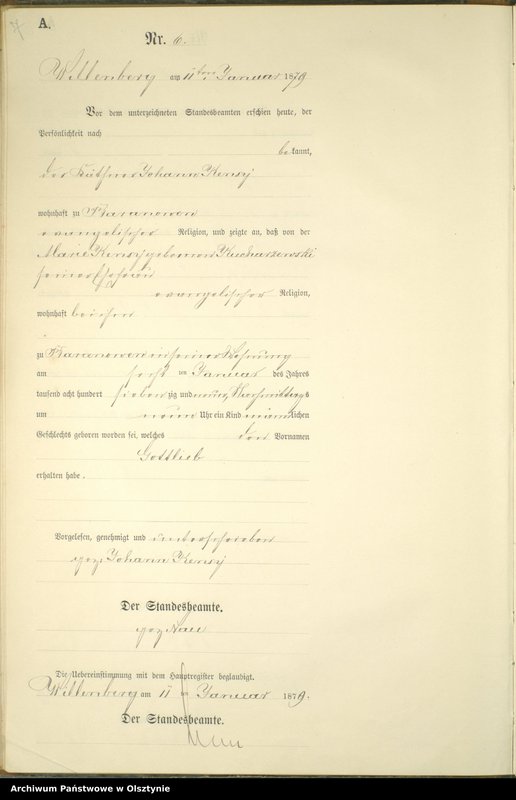 A.
Nr. 6.
Willenberg am 11ten Januar 1879
Vor dem unterzeichneten Standesbeamten erschien heute, der
Persönlichkeit nach
bekannt,
der Käthner Johann Kensy
wohnhaft zu Baranowen
evangelischer Religion, und zeigte an, daß von der
Marie Kensy geborenen Kucharzewski
seiner Ehefrau
evangelischer Religion,
wohnhaft bei ihm
zu Baranowen in seiner Wohnung
am ten Januar des Jahres
tausend acht hundert siebenzig und neun, Nachmittags
um neun Uhr ein Kind männlichen
Geschlechts geboren worden sei, welches den Vornamen
Gottlieb
erhalten habe.
Vorgelesen, genehmigt und unterschrieben
gez. Johann Kensy
Der Standesbeamte.
gez
Die Uebereinstimmung mit dem Hauptregister beglaubigt.
Willenberg am 11 Januar 1879.
Der Standesbeamte.
Archiwum Państwowe w Olsztynie